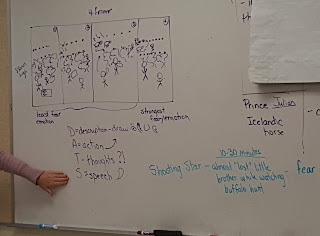 4 frame
least fear
emotion
strongest
fear/emotion
D=description-draw
A=action
T-thoughts ?!
S=speech
10-30 minutes
Shooting Star - almost "lost" little
brother while watching
buffalo hunt
fear
Prince Julian
Icelandic
horse